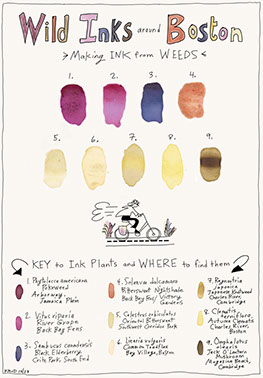 Wild Inks around Boston
> Making INK from WEEDS <
1. 2. 3. 4.
5. 6. 7. 8. 9.
KEY to Ink Plants and WHERE to find them
1. Phytolacca americana
Pokeweed
Arborway,
Jamaica Plain
2. Vitus riparia
River Grape
Back Bay Fens
3. Sambucus canadensis
Black Elderberry
4. Solanum dulcamara
Bittersweet Nightshade
Back Bay Fens/ Victory
Gardens
5. Celastrus orbiculatus
Oriental Bittersweet
Southwest Corridor Park
6. Linaria vulgaris
Common Toadflax
Bay Village, Boston
7. Reynoutria
japonica
Japanese Knotweed
Charles River,
Cambridge
8. Clematis
terniflora
Autumn Clematis
Charles River,
Boston
9. Omphalotus
olearius
Jack O'Lantern
Mushroom
Magazine Beach,
Cambridge